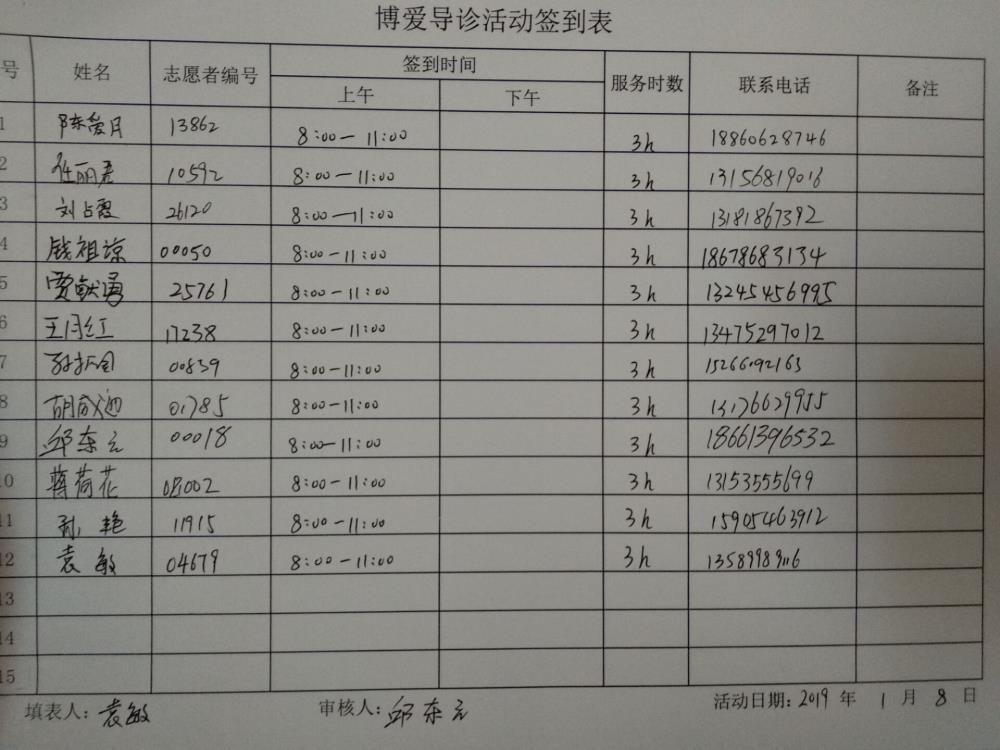 博爱导诊活动签到表
号 姓名 志愿者编号 签到时间 服务时数 联系电话 备注
上午 下午
1 陈爱月 13862 8:00-11:00 3h 18860628746
2 任丽君 10592 8:00-11:00 3h 13156819016
3 刘占霞 26120 8:00-11:00 3h 13181867392
4 钱祖琼 00050 8:00-11:00 3h 18678683134
5 贾献勇 25761 8:00-11:00 3h 13245456995
6 王月红 17238 8:00-11:00 3h 13475297012
7 00839 8:00-11:00 3h 15266092163
8 01785 8:00-11:00 3h 13176629955
9 邱东云 00018 8:00-11:00 3h 18661396532
10 蒋荷花 08002 8:00-11:00 3h 13153555699
11 孙艳 11915 8:00-11:00 3h 15905463912
12 袁敏 04679 8:00-11:00 3h 13589989116
13
14
15
填表人:袁敏 审核人:邱东云 活动日期:2019 年 1 月 8 日